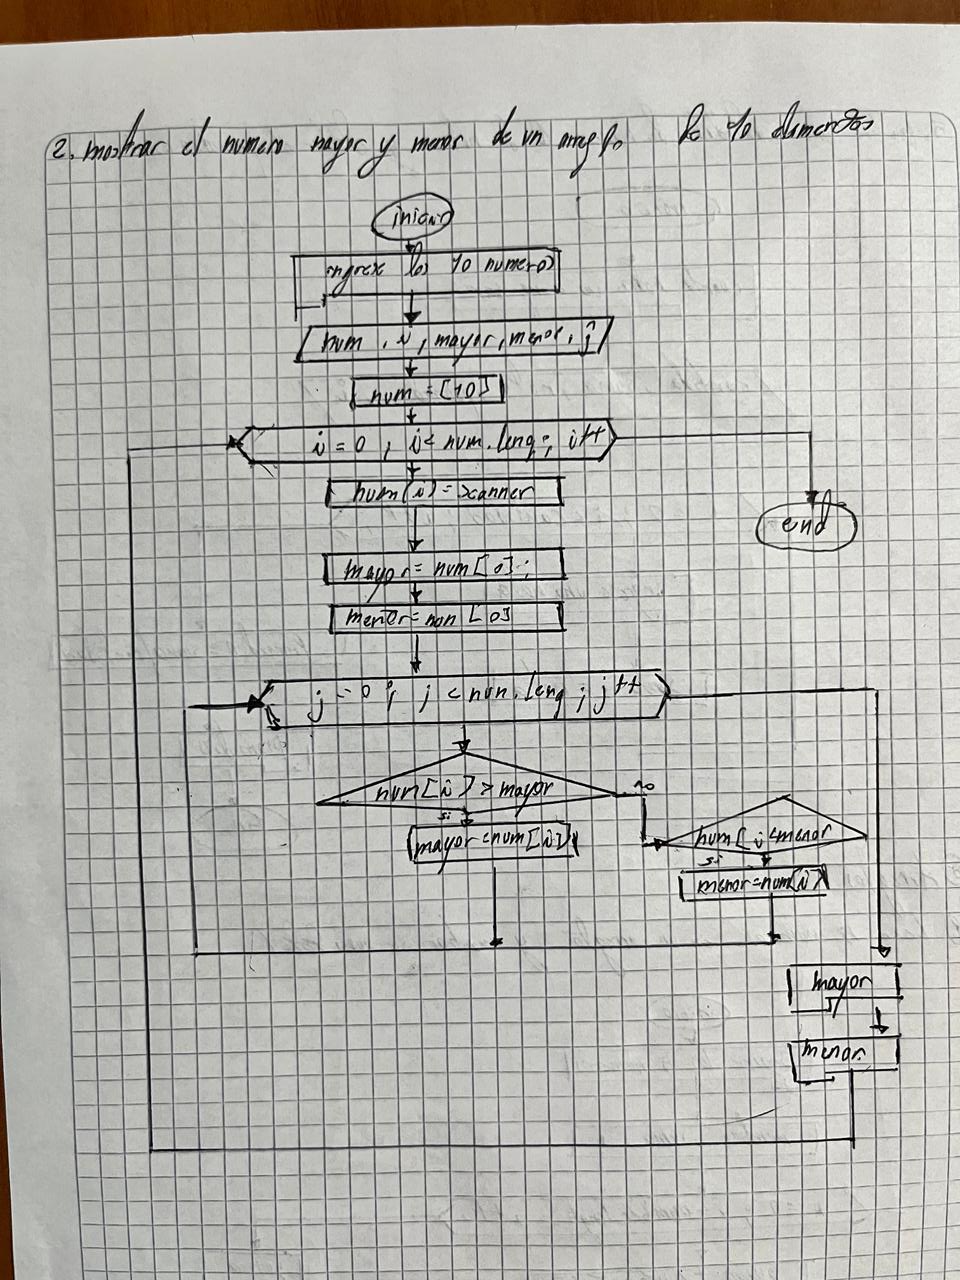 2. mostrar el numero mayor y menor de un arreglo de 10 elementos
inicio
ingrese los 10 numeros
num , i , mayor, menor, j
num = [10]
i = 0 ; i < num.leng; i++
num(i) = scanner
end
mayor = num[0];
menor = num [0]
j = 0 ; j < num.leng ; j++
num[i] > mayor
no
si
mayor = num[i]
num[i < menor
si
menor = num[i]
mayor
menor